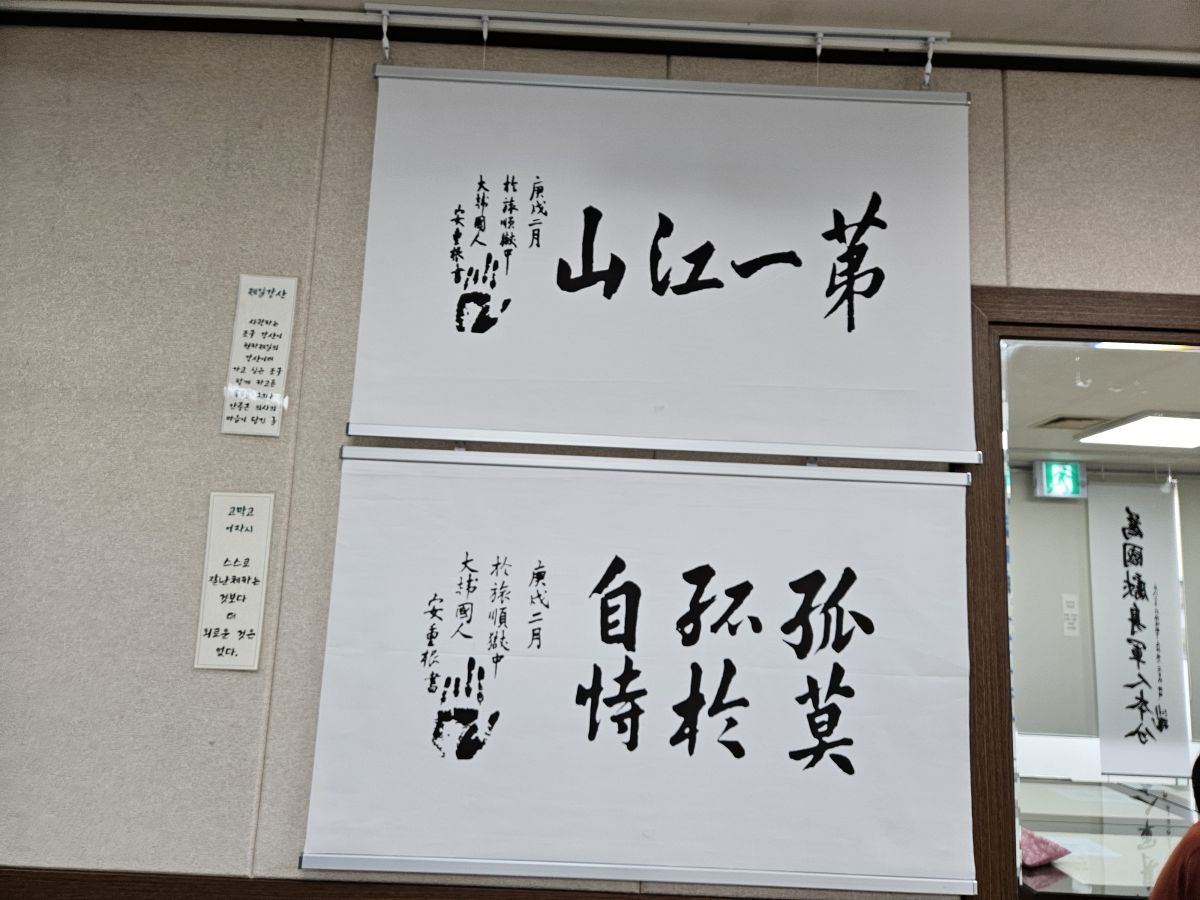 第一江山
庚戌二月
於旅順獄中
大韓國人
安重根書
孤莫
孤於
自恃
庚戌二月
於旅順獄中
大韓國人
安重根書
제일강산
사랑하는
조국 강산이
천하제일의
강산이며
가고 싶은 조국
함께 하고픈
안중근 의사의
마음이 담긴 글
고막고
어자시
스스로
잘난체하는
것보다
더
외로운 것은
없다.
為國獻身軍人本分